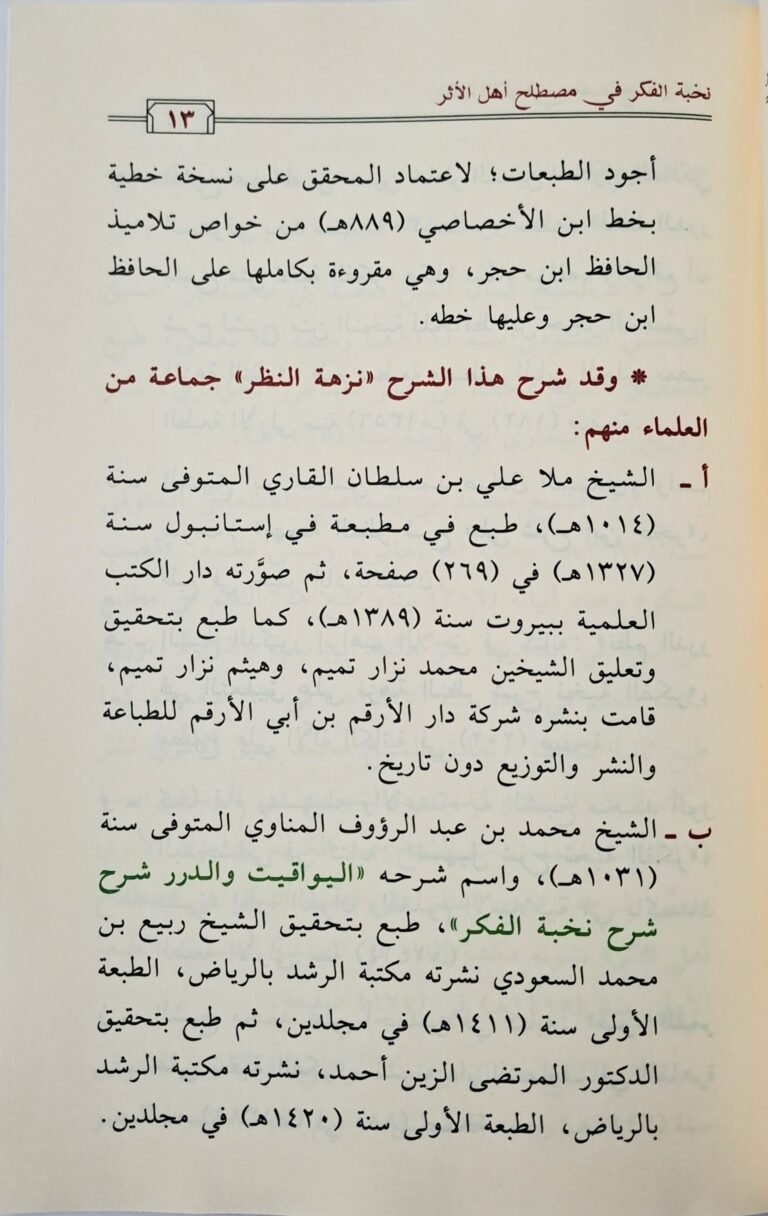 نخبة الفكر في مصطلح أهل الأثر
١٣
أجود الطبعات؛ لاعتماد المحقق على نسخة خطية
بخط ابن الأخصاصي (٨٨٩هـ) من خواص تلاميذ
الحافظ ابن حجر، وهي مقروءة بكاملها على الحافظ
ابن حجر وعليها خطه.
* وقد شرح هذا الشرح «نزهة النظر» جماعة من
العلماء منهم:
أ ـ الشيخ ملا علي بن سلطان القاري المتوفى سنة
(١٠١٤هـ)، طبع في مطبعة في إستانبول سنة
(١٣٢٧هـ) في (٢٦٩) صفحة، ثم صوَّرته دار الكتب
العلمية ببيروت سنة (١٣٨٩هـ)، كما طبع بتحقيق
وتعليق الشيخين محمد نزار تميم، وهيثم نزار تميم،
قامت بنشره شركة دار الأرقم بن أبي الأرقم للطباعة
والنشر والتوزيع دون تاريخ.
ب ـ الشيخ محمد بن عبد الرؤوف المناوي المتوفى سنة
(١٠٣١هـ)، واسم شرحه «اليواقيت والدرر شرح
شرح نخبة الفكر»، طبع بتحقيق الشيخ ربيع بن
محمد السعودي نشرته مكتبة الرشد بالرياض، الطبعة
الأولى سنة (١٤١١هـ) في مجلدين، ثم طبع بتحقيق
الدكتور المرتضى الزين أحمد، نشرته مكتبة الرشد
بالرياض، الطبعة الأولى سنة (١٤٢٠هـ) في مجلدين.